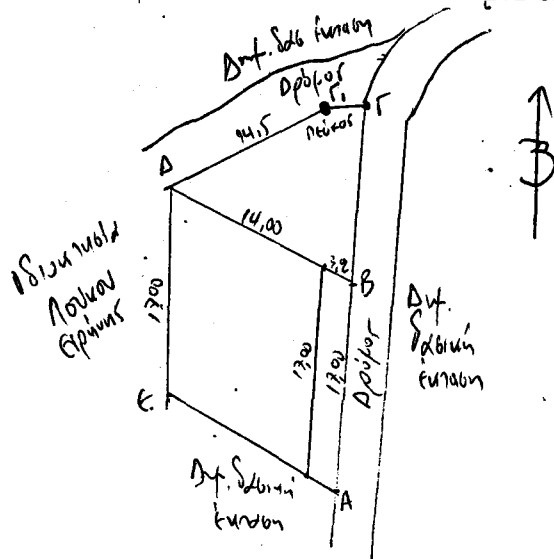 Δημ. δασ. έκταση
Δρόμος
Γ₁
Γ
14,5
πεύκος
Δ
14,00
3,2
Β
17,00
Ιδιοκτησία
Λούκου
Ειρήνης
17,00
17,00
Δρόμος
Δημ.
δασική
έκταση
Ε.
Α
Δημ. δασική
έκταση
Β